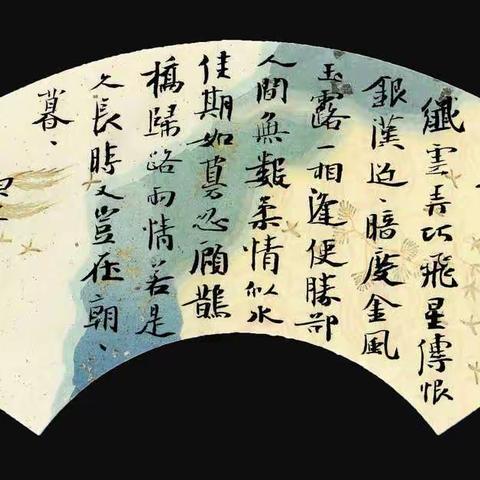 纖雲弄巧飛星傳恨
銀漢迢、暗度金風
玉露一相逢便勝卻
人間無數柔情似水
佳期如夢忍顧鵲
橋歸路兩情若是
久長時又豈在朝、
暮、